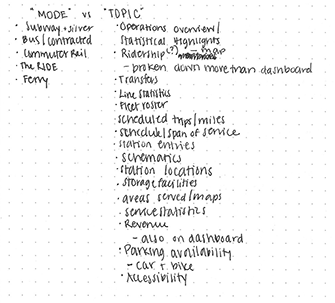 "MODE" vs "TOPIC"
· Subway + silver
· Bus/contracted
· Commuter Rail
· The RIDE
· Ferry
· Operations overview/
Statistical Highlights
· Ridership (?) – map
– broken down more than dashboard
· Transfers
· Line statistics
· Fleet roster
· scheduled trips/miles
· schedule/span of service
· station entries
· schematics
· station locations
· storage facilities
· areas served/maps
· service statistics
· Revenue
– also on dashboard
· Parking availability
– car + bike
· Accessibility